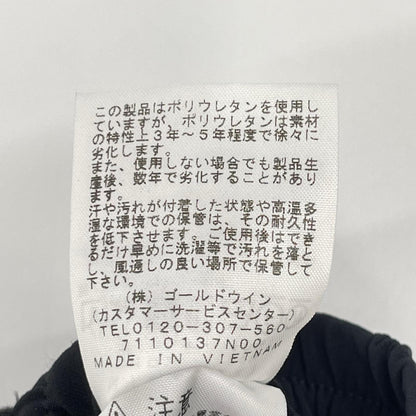 この製品はポリウレタンを使用し
ていますが、ポリウレタンは素材
の特性上3年～5年程度で徐々に
劣化します。
また、使用しない場合でも製品生
産後、数年で劣化することがあり
ます。
汗や汚れが付着した状態や高温多
湿な環境での保管は、その耐久性
を低下させます。ご使用後はでき
るだけ早めに洗濯等で汚れを落と
し、風通しの良い場所で保管して
下さい。
(株) ゴールドウイン
(カスタマーサービスセンター)
TEL0120-307-560
7110137N00
MADE IN VIETNAM
注意